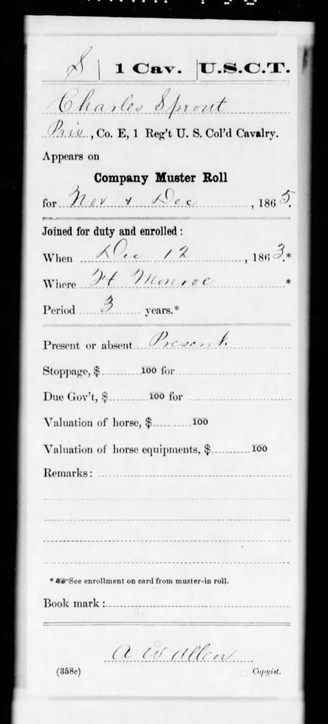 S | 1 Cav. | U.S.C.T.
Charles Sprout
Priv, Co. E, 1 Reg't U. S. Col'd Cavalry.
Appears on
Company Muster Roll
for Nov & Dec, 1865.
Joined for duty and enrolled:
When Dec 12, 1863.*
Where Ft Monroe *
Period 3 years.*
Present or absent Present.
Stoppage, $ 100 for
Due Gov't, $ 100 for
Valuation of horse, $ 100
Valuation of horse equipments, $ 100
Remarks:
* See enrollment on card from muster-in roll.
Book mark:
A W Allen
(358c) Copyist.